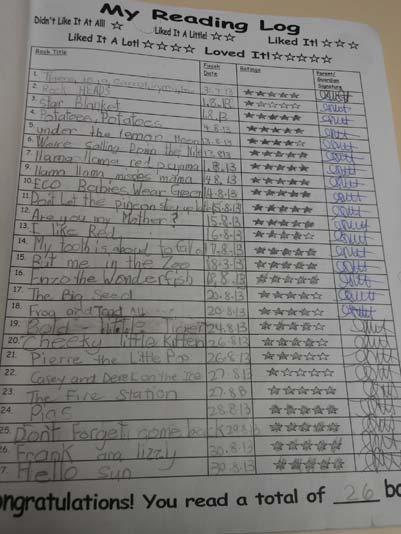 My Reading Log
Didn't Like It At All! ☆ Liked It A Little! ☆☆ Liked It! ☆☆☆
Liked It A Lot! ☆☆☆☆ Loved It! ☆☆☆☆☆
Book Title Finish Date Ratings Parent/Guardian Signature
1.
2. Rock HEADS
3. Star Blanket 1.8.13
4. Potatoes, Potatoes
5. under the lemon Moon 4.8.13
6. We're Sailing Down the Nile
7. llama llama red pajama 4.8.13
9. llama llama misses mama 4.8.13
10. ECO Babies Wear Green 14.8.13
11. Don't Let the pigeon stay up late 15.8.13
12. Are you my Mother? 15.8.13
13. I like Red 16.8.13
14. My tooth is about to fall o 17.8.13
15. Put me in the Zoo 18.8.13
16. Enzo the Wonderfish 18.8.13
17. The Big Seed 20.8.13
18. Frog and Toad All 20.8.13
19. Bold 24.8.13
20. Cheeky little Kitten 26.8.13
21. Pierre the Little 26.8.13
22. Casey and Derek on the Ice 27.8.13
23. The Fire Station 27.8.8
24. Pigs 28.8.13
25. Don't forget, come back 29.8.13
26. Frank and lizzy 30.8.13
7. Hello Sun 30.8.13
ongratulations! You read a total of 26 bo